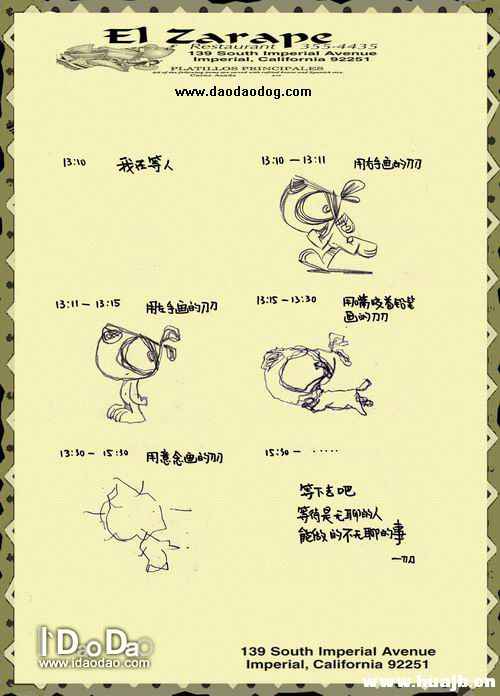 El Zarape
Restaurant 355-4435
139 South Imperial Avenue
Imperial, California 92251
PLATILLOS PRINCIPALES
www.daodaodog.com
13:10 我在等人
13:10 — 13:11 用右手画的刀刀
13:11 — 13:15 用左手画的刀刀
13:15 — 13:30 用嘴咬着铅笔
画的刀刀
13:30 — 15:30 用意念画的刀刀
15:30 — ·····
等下去吧
等待是无聊的人
能做的不无聊的事
—刀
iDaoDao
www.idaodao.com
139 South Imperial Avenue
Imperial, California 92251